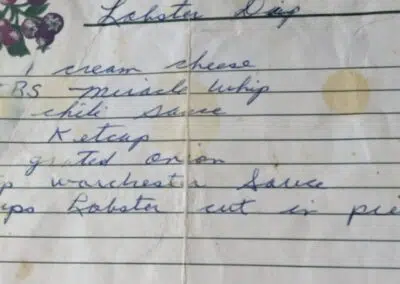 Lobster Dip
1 cream cheese
BS miracle whip
chili sauce
Ketcup
grated onion
p warchester Sauce
ups Lobster cut in pie